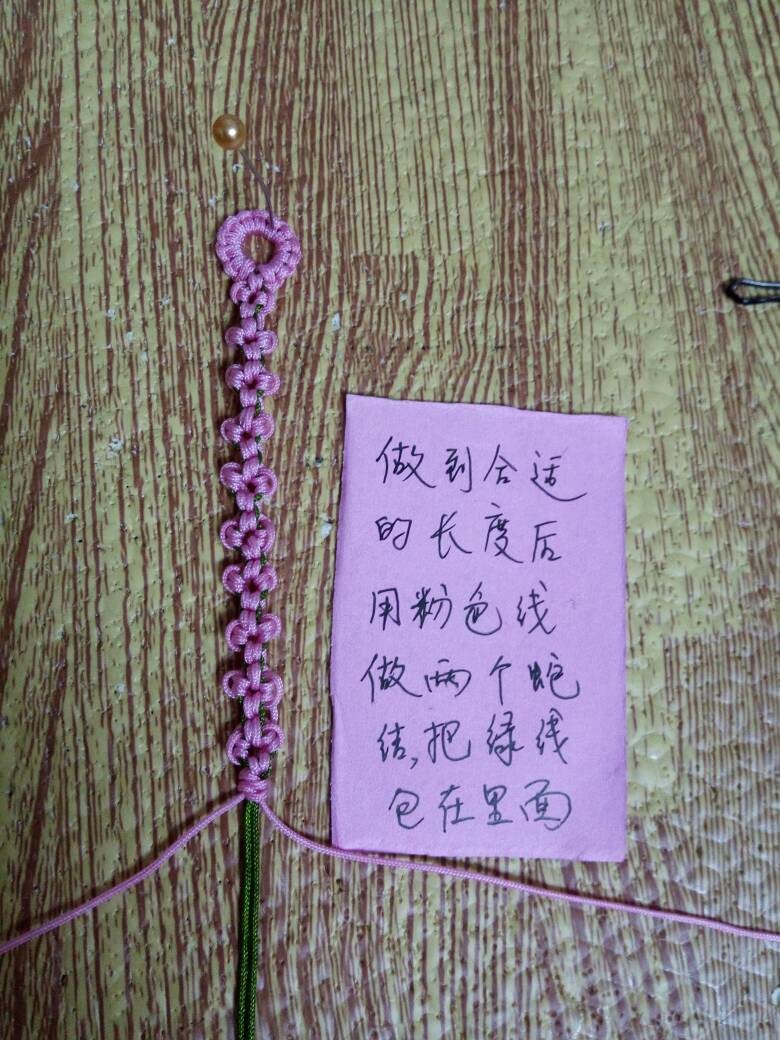 做到合适
的长度后
用粉色线
做两个蛇
结,把绿线
包在里面